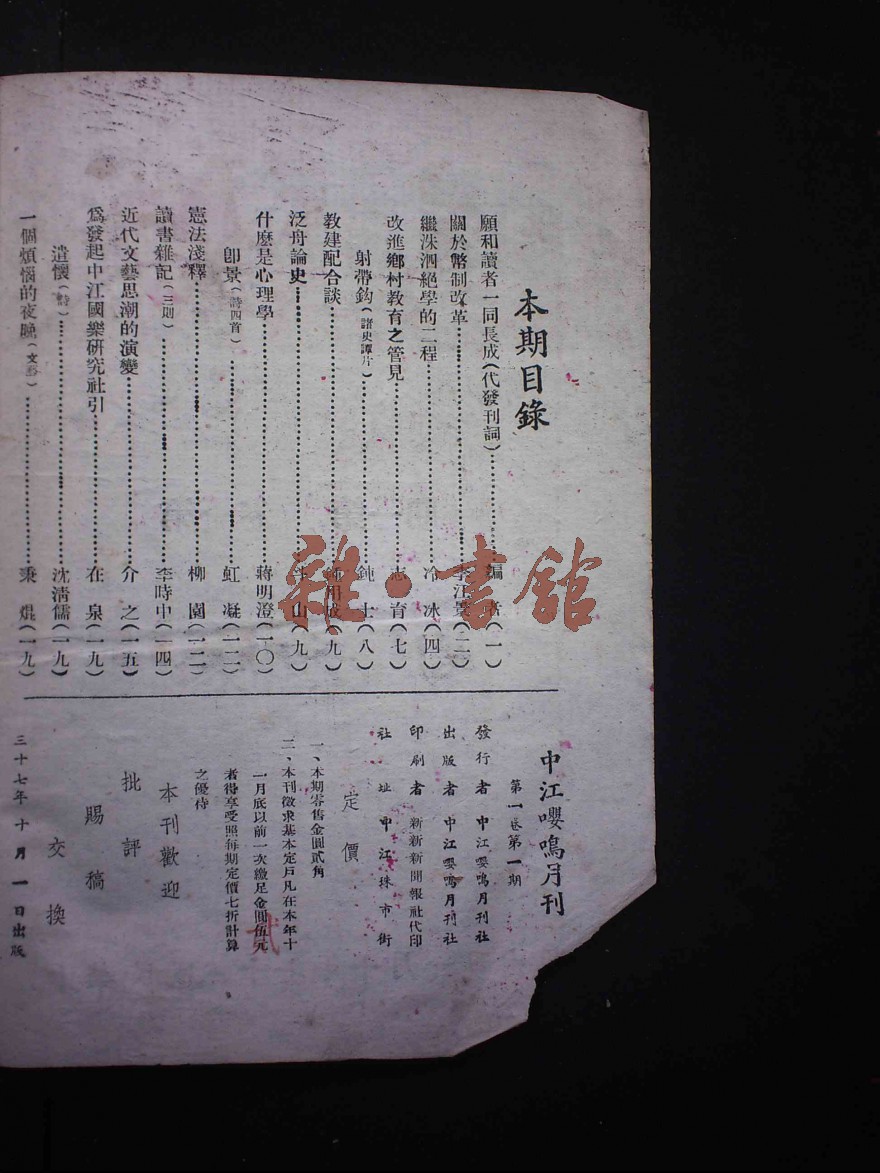 本期目錄
願和讀者一同長成(代發刊詞)……編者(一)
關於幣制改革……李江景(二)
繼洙泗絕學的二程……冷冰(四)
改進鄉村教育之管見……志育(七)
射帶鈎(諸史譚片)……鈍士(八)
教建配合談……用成(九)
泛舟論史……山(九)
什麼是心理學……蔣明澄(一〇)
卽景(詩四首)……虹凝(一二)
憲法淺釋……柳園(一二)
讀書雜記(三則)……李時中(一四)
近代文藝思潮的演變……介之(一五)
爲發起中江國樂研究社引……在泉(一九)
遣懷(詩)……沈清儒(一九)
一個煩惱的夜晚(文藝)……秉焜(一九)
中江嚶鳴月刊
第一卷第一期
發行者 中江嚶鳴月刊社
出版者 中江嚶鳴月刊社
印刷者 新新新聞報社代印
社址 中江珠市街
定價
一、本期零售金圓貳角
二、本刊徵求基本定戶凡在本年十
一月底以前一次繳足金圓伍元
者得享受照每期定價七折計算
之優待
本刊歡迎
批評
賜稿
交換
三十七年十月一日出版
雜·書館